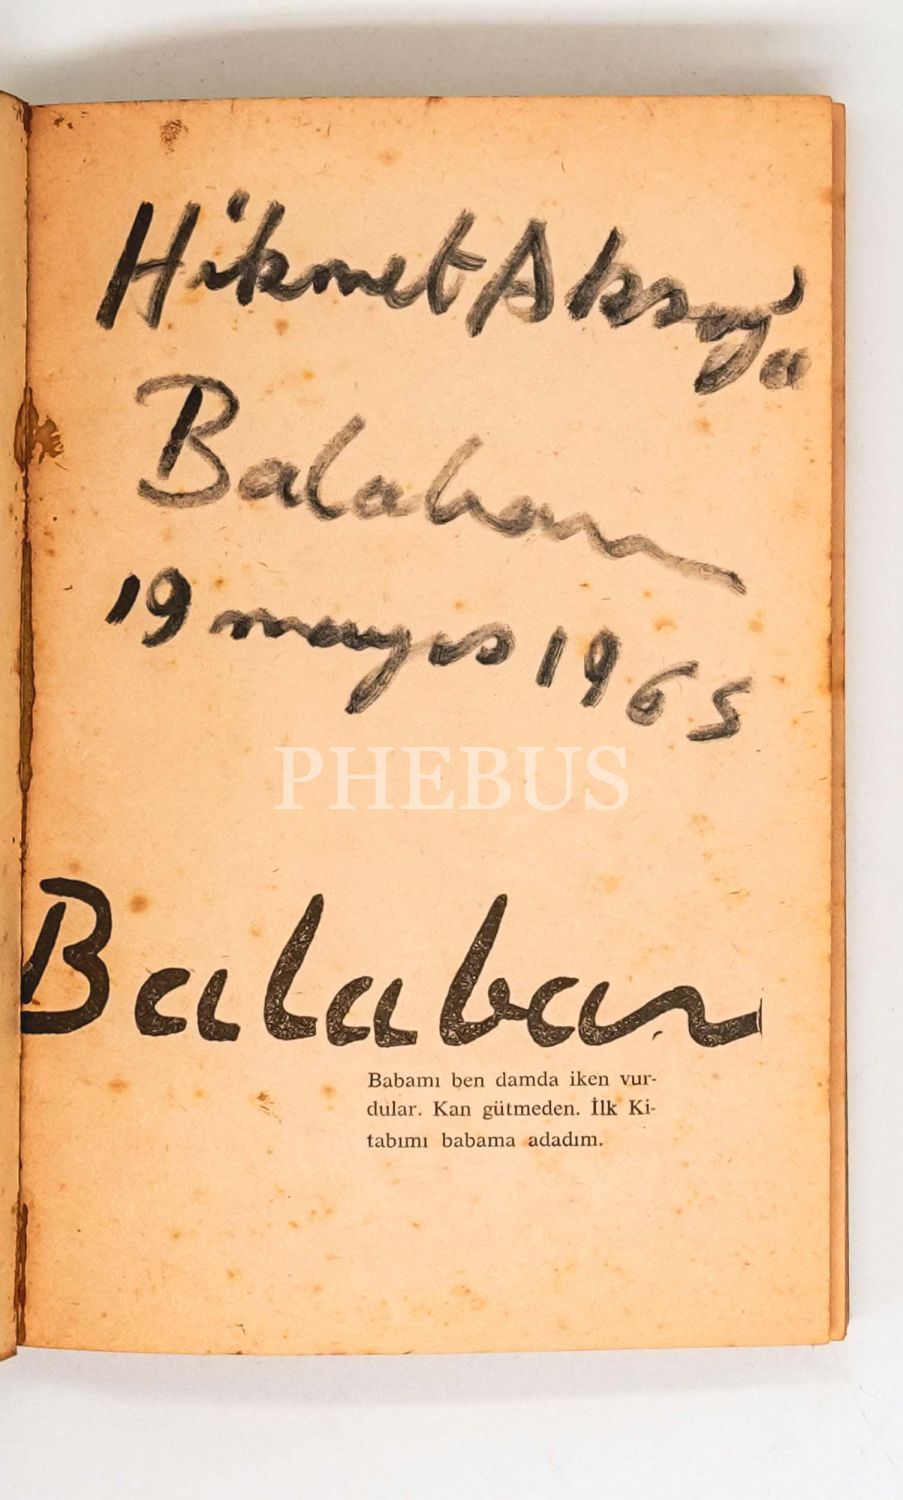 Hikmet Aksoy'a
Balaban
19 mayıs 1965
PHEBUS
Balaban
Babamı ben damda iken vur-
dular. Kan gütmeden. İlk Ki-
tabımı babama adadım.